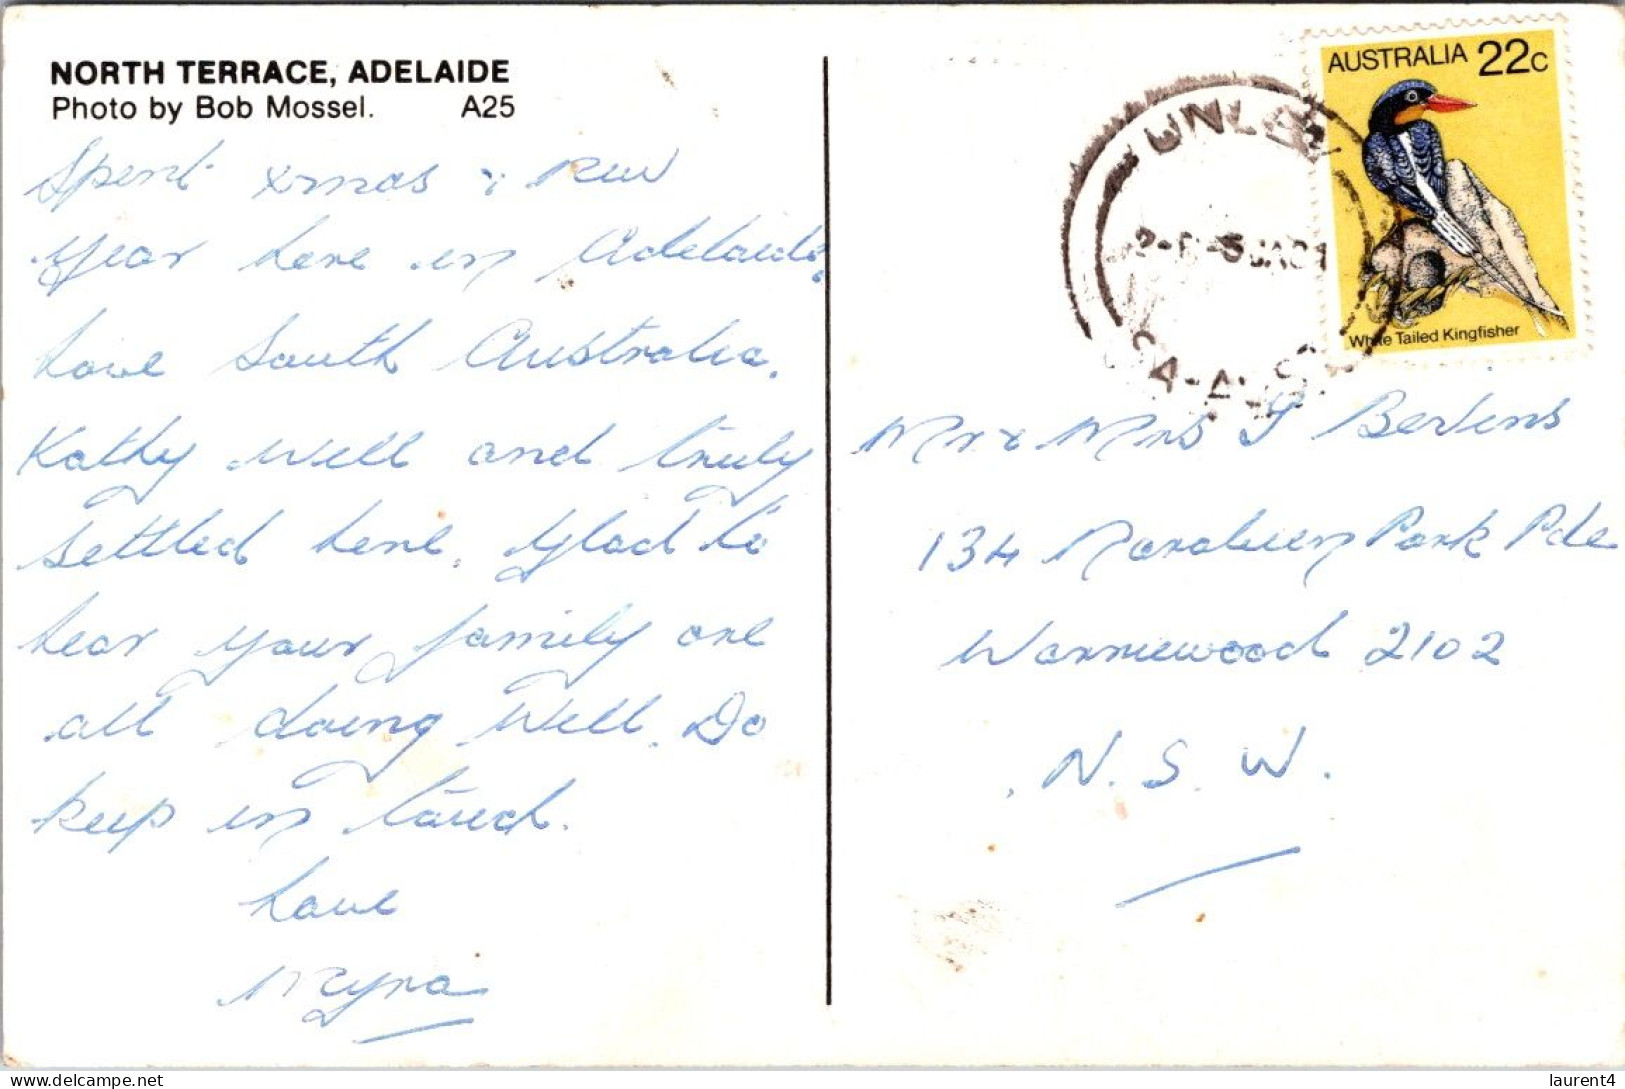 NORTH TERRACE, ADELAIDE
Photo by Bob Mossel. A25
Spent xmas & New
Year here in Adelaide.
Love South Australia.
Kathy well and truly
settled here. Glad to
hear your family are
all doing well. Do
keep in touch.
Love
Myra
AUSTRALIA 22c
White Tailed Kingfisher
UNLEY
SA-AUST
Mr & Mrs J Bertens
134 Narabeen Park Pde
Warriewood 2102
N.S.W.
laurent4